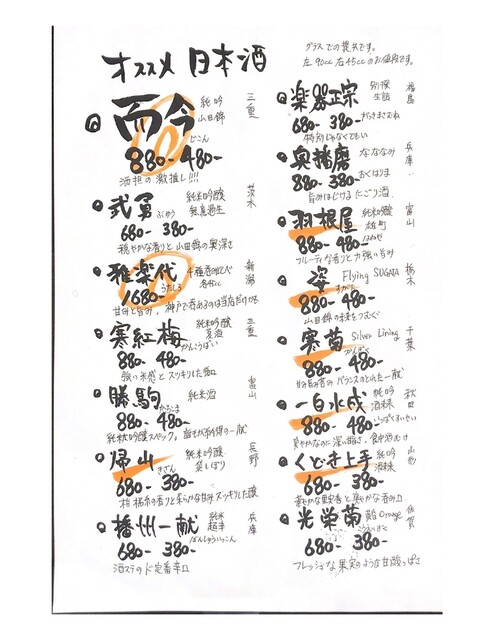 オススメ 日本酒
グラスでの提供です。
左90cc 右45ccのお値段です。
而今 純吟 山田錦 三重
じこん
880- 480-
酒担の激推し!!!
武勇 純米吟醸 無濾過生 茨木
ぶゆう
680- 380-
穏やかな香りと山田錦の奥深さ
雅楽代 4種呑み比べ 各45cc 新潟
うたしろ
1680-
甘味と旨み。神戸で呑めるのは当店だけかも
寒紅梅 純米吟醸 夏酒 三重
かんこうばい
880- 480-
強い米感とスッキリした辛口
勝駒 純米酒 富山
かちこま
880- 480-
純米吟醸スペック。
帰山 純米吟醸 荒しぼり 長野
きざん
680- 380-
柑橘系の香りと柔らかな甘味スッキリした酸
播州一献 純米 超辛 兵庫
ばんしゅういっこん
680- 380-
酒ステのド定番辛口
楽器正宗 別撰 生詰 福島
がっきまさむね
680- 380-
特別じゃなくてもいい
奥播磨 なななみ 兵庫
おくはりま
880- 380-
旨みはじけるにごり酒
羽根屋 純米吟醸 雄町 富山
はねや
880- 480-
フルーティな香りと力強い旨み
姿 Flying SUGATA 栃木
すがた
880- 480-
山田錦の未来をつむぐ
寒菊 Silver Lining 千葉
かんぎく
880- 480-
甘み旨み香の バランスのとれた一献
一白水成 純吟 酒未来 秋田
いっぱくすいせい
880- 480-
爽やかなのに深い旨さ。食中酒向け
くどき上手 純吟 酒未来 山形
680- 380-
華やかな果実香と爽やかな呑み口
光栄菊 黄飴Orange 佐賀
こうえいぎく
680- 380-
フレッシュな果実のような甘酸っぱさ